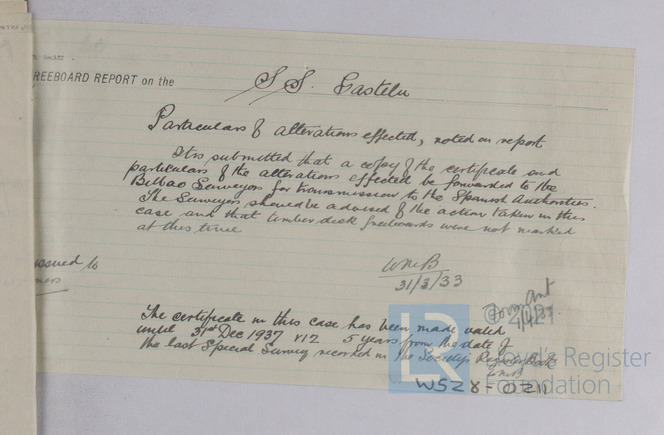 REEBOARD REPORT on the S.S. Gastelu
Particulars of alterations effected, noted on report
It is submitted that a copy of the certificate and
particulars of the alterations effected be forwarded to the
Bilbao Surveyors for transmission to the Spanish Authorities.
The Surveyors should be advised of the action taken in this
case and that timber deck freeboards were not marked
at this time
issued to
ners
WMB
31/3/33
The certificate in this case has been made valid
until 31st Dec 1937 viz 5 years from the date of
the last Special Survey recorded in the Society's Register Book
WMB
LR
Lloyd's Register
Foundation
W528-0211